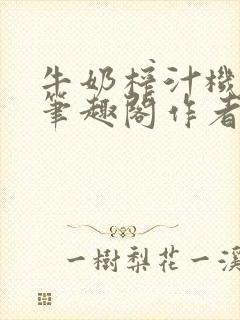 牛奶榨汁機
筆趣閣作者
一樹梨花一溪